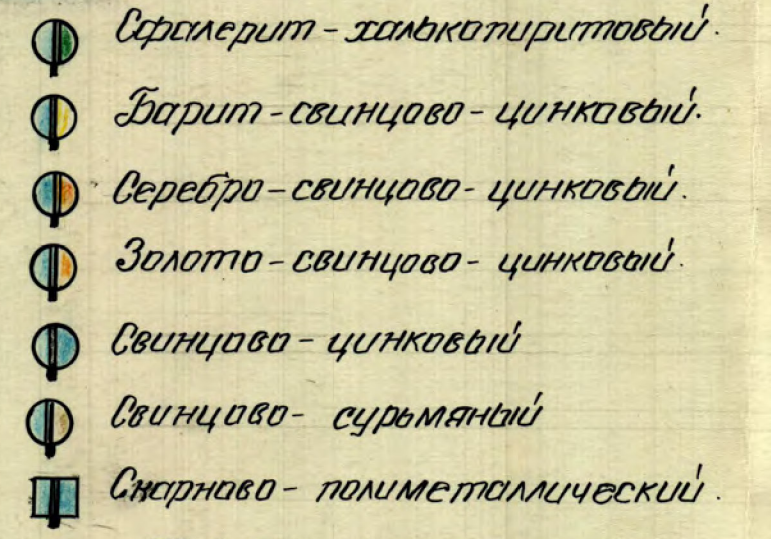 Сфалерит-халькопиритовый.
Барит-свинцово-цинковый.
Серебро-свинцово-цинковый.
Золото-свинцово-цинковый.
Свинцово-цинковый
Свинцово-сурьмяный
Скарново-полиметаллический.